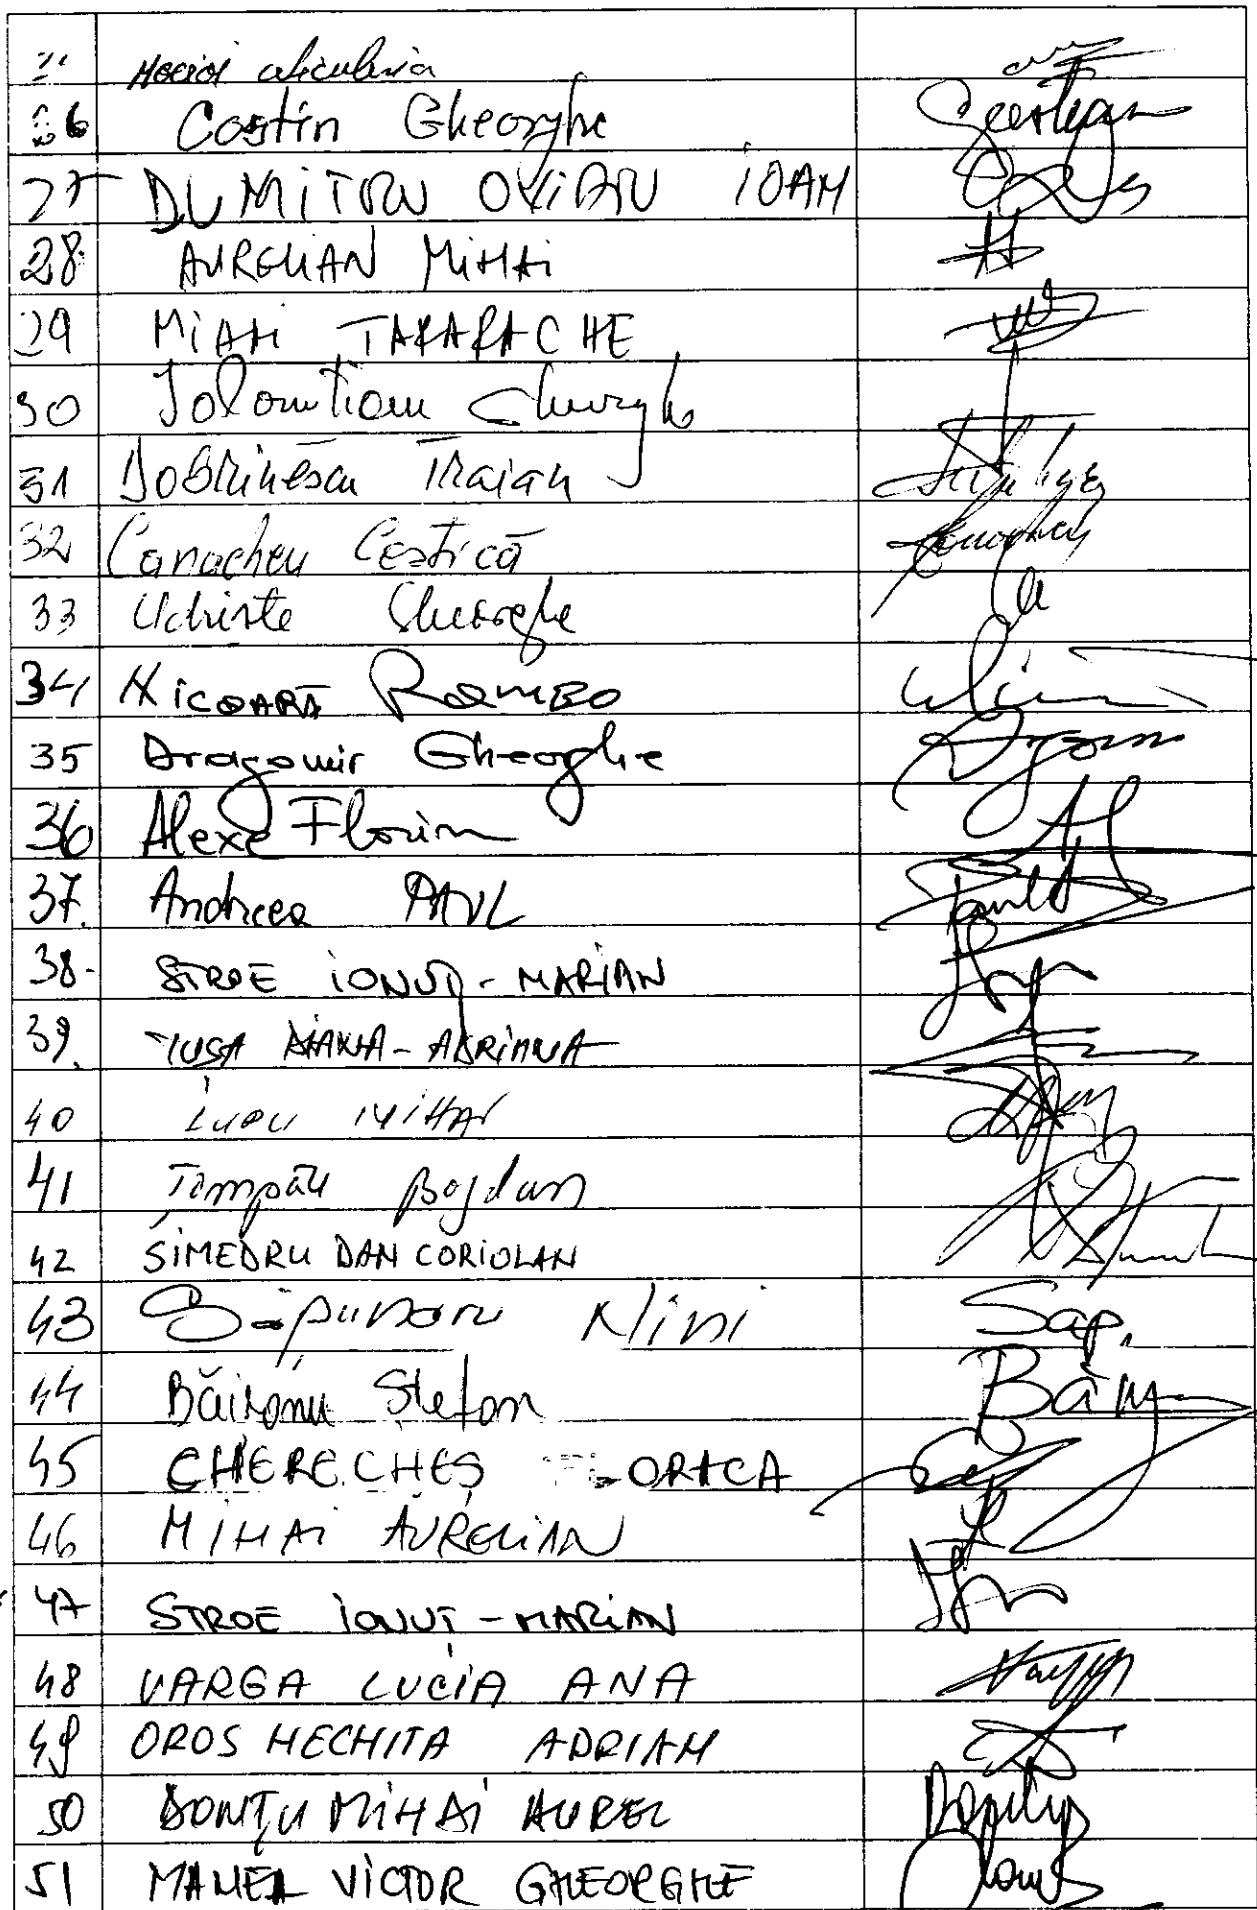 26 Costin Gheorghe
27 DUMITRU OVIDIU IOAN
28. AURELIAN MIHAI
29 MIHAI TARARACHE
30 Ialomitianu Gheorghe
31 Dobrinescu Traian
32 Canacheu Costică
33 Udriste Gheorghe
34 NICOARĂ ROMEO
35 Dragomir Gheorghe
36 Alexe Florin
37. Andreea PAUL
38. STROE IONUȚ-MARIAN
39. TUȘA DIANA-ADRIANA
40 LUPU MIHAI
41 Tîmpău Bogdan
42 ȘIMEDRU DAN CORIOLAN
43 Săpunaru Nini Sap.
44 Băișanu Ștefan
45 CHERECHEȘ FLORICA
46 MIHAI AURELIAN
47 STROE IONUȚ-MARIAN
48 VARGA LUCIA ANA
49 OROS NECHITA ADRIAN
50 DONȚU MIHAI AUREL
51 MANEA VICTOR GHEORGHE